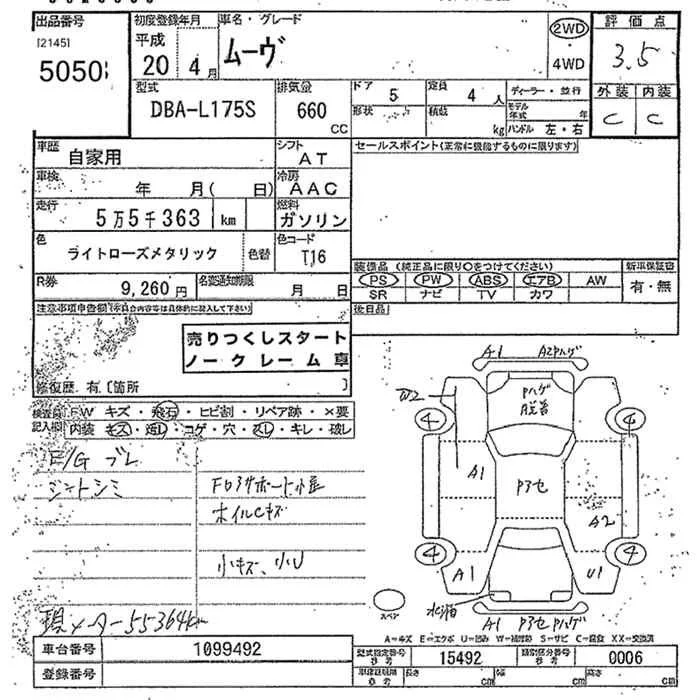 出品番号
[2145]
5050
初度登録年月
平成
20 4月
車名・グレード
ムーヴ
2WD
・
4WD
評価点
3.5
外装 内装
C C
型式
DBA-L175S
排気量
660
CC
ドア
5
定員
4 人
形状
積載
kg
ディーラー・並行
モデル年式 年
ハンドル 左・右
車歴
自家用
シフト
AT
車検
年 月( 日)
冷房
AAC
走行
5万5千363 km
燃料
ガソリン
色
ライトローズメタリック
色替
色コード
T16
R券
9,260円
名変通知期限
月 日
セールスポイント(正常に機能するものに限ります)
装備品 (純正品に限り○をつけてください)
PS PW ABS エアB AW
SR ナビ TV カワ
新車保証書
有・無
後日品
注意事項申告欄
売りつくしスタート
ノークレーム車
修復歴 有〔箇所 〕
検査員記入欄
FW キズ・飛石・ヒビ割・リペア跡・×要
内装 キズ・汚レ・コゲ・穴・スレ・キレ・破レ
E/G ブレ
シートシミ
ホイルCキズ
小キズ、小U
現メーター55364km
A1 A2Pハゲ
W2
Pハゲ
4 4
A1
Pアセ
A2
4 4
A1
U1
スペア
A1 Pアセ Pハゲ
A=キズ E=エクボ U=凹み W=補修跡 S=サビ C=腐食 XX=交換済
車台番号
1099492
登録番号
型式指定番号
参考
15492
類別区分番号
参考
0006
車庫証明用
参考
長さ cm
幅 cm
高さ cm